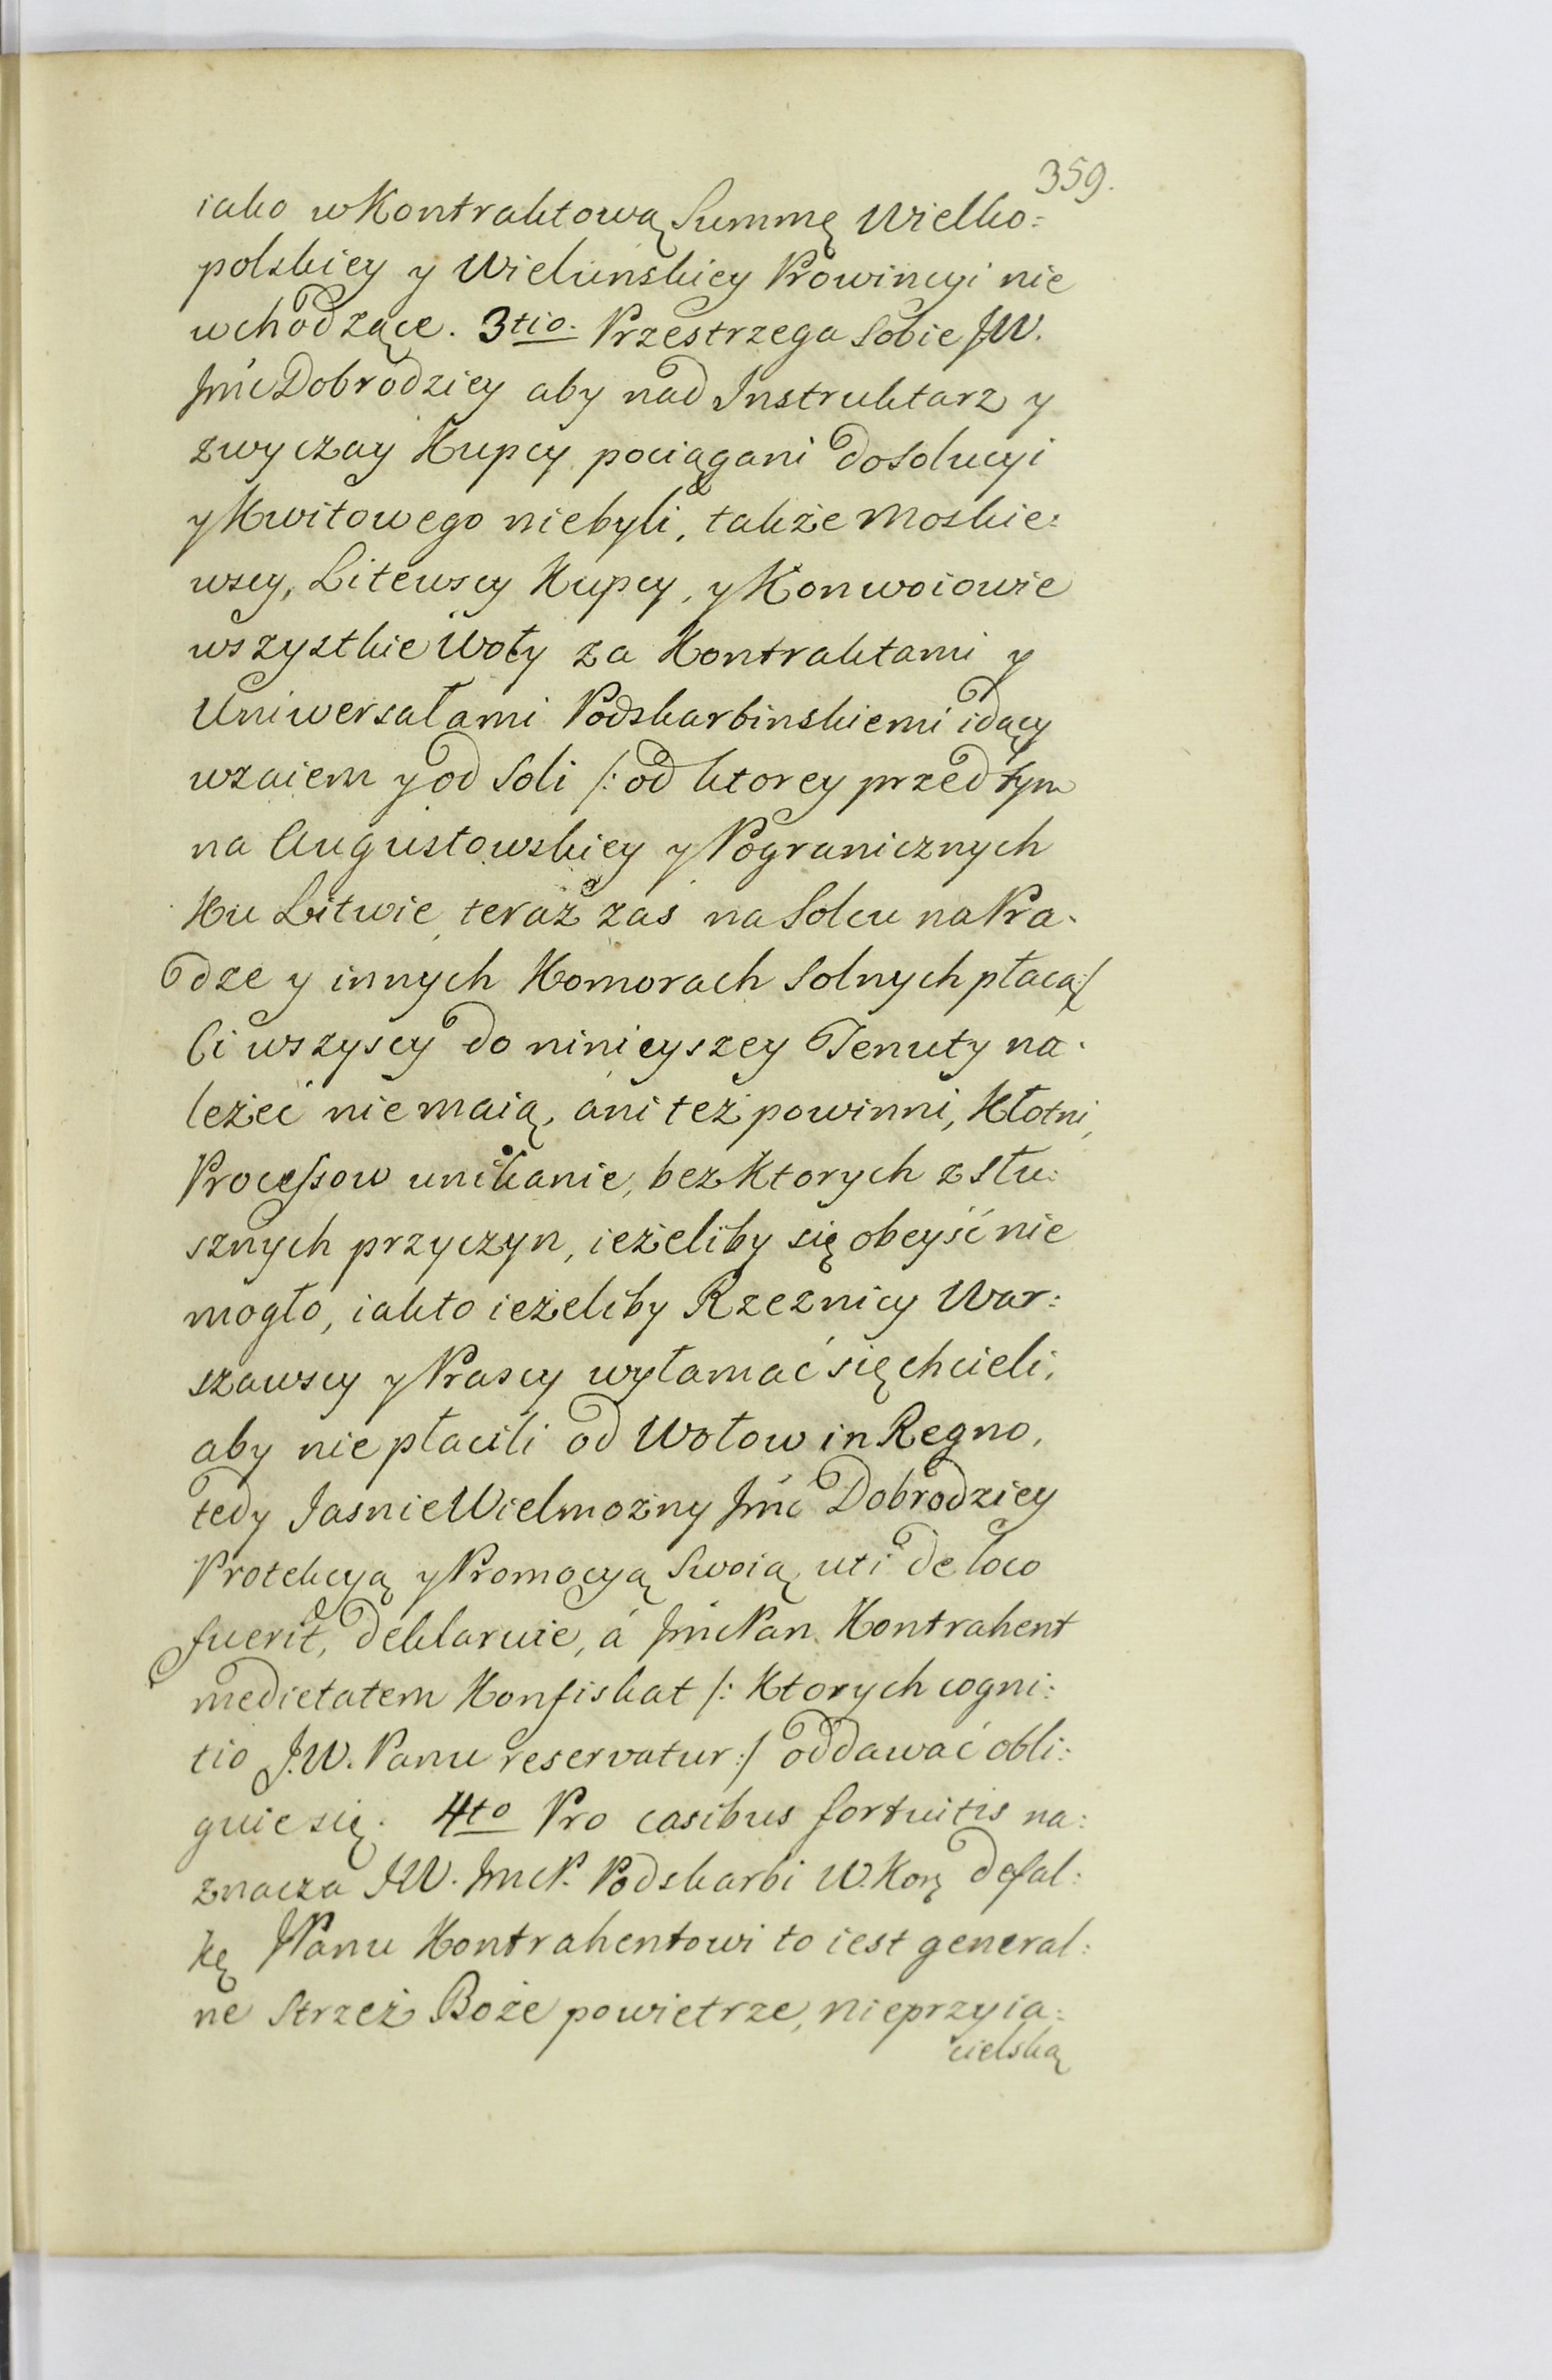 359.
iako w Kontraktową Summę Wielko:
polskiey y Wielunskiey Prowincyi nie
wchodzące. 3tio. Przestrzega sobie JW.
Jmć Dobrodziey aby nad Instruktarz y
zwyczay Kupcy pociągani do Solucyi
y Kwitowego niebyli, także Moskie:
wscy, Litewscy Kupcy, y Konwoiowie
wszystkie Woły za Kontraktami y
Uniwersałami Podskarbinskiemi idący
wzaiem y od Soli /: od ktorey przed tym
na Augustowskiey y Pogranicznych
Ku Litwie, teraz zas na Solcu na Pra-
dze y innych Komorach Solnych płacą:/
Ci wszyscy do ninieyszey Tenuty na-
leżeć nie maią, ani też powinni, Kłotni,
Processow unikanie, bez Ktorych z słu:
sznych przyczyn, ieżeliby się obeyść nie
mogło, iakto ieżeliby Rzeznicy War:
szawscy y Prascy wyłamać się chcieli,
aby nie płacili od Wołow in Regno,
tedy Jasnie Wielmożny Jmć Dobrodziey
Protekcyą y Promocyą Swoią, uti de loco
fuerit, deklaruie, á Jmć Pan Kontrahent
medietatem Konfiskat /: Ktorych cogni:
tio J.W. Panu reservatur :/ oddawać obli:
guie się. 4to Pro casibus fortuitis na:
znacza JW. Jmć P. Podskarbi W. Korę defal:
kę JPanu Kontrahentowi to iest general:
ne Strzeż Boże powietrze, nieprzyia:
cielską